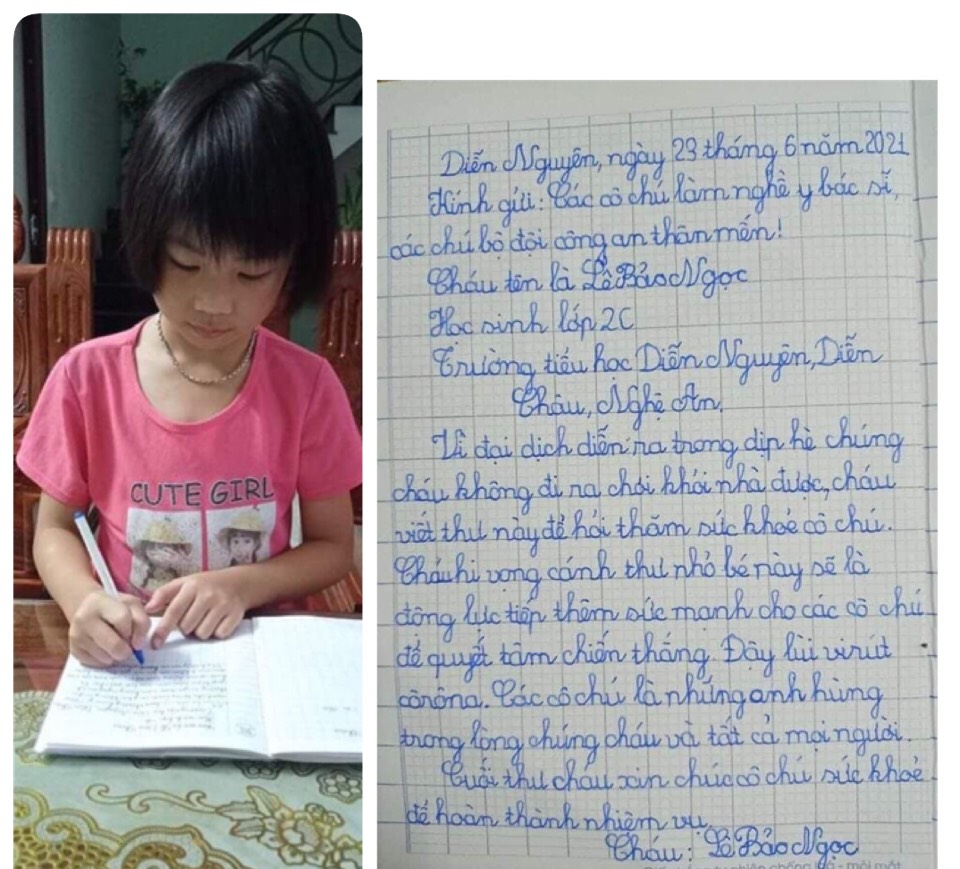 CUTE GIRL
Diễn Nguyên, ngày 23 tháng 6 năm 2021
Kính gửi: Các cô chú làm nghề y bác sĩ,
các chú bộ đội công an thân mến!
Cháu tên là Lê Bảo Ngọc
Học sinh lớp 2C
Trường tiểu học Diễn Nguyên, Diễn
Châu, Nghệ An.
Vì đại dịch diễn ra trong dịp hè chúng
cháu không đi ra chơi khỏi nhà được, cháu
viết thư này để hỏi thăm sức khoẻ cô chú.
Cháu hi vọng cánh thư nhỏ bé này sẽ là
động lực tiếp thêm sức mạnh cho các cô chú
để quyết tâm chiến thắng. Đẩy lùi virút
côrôna. Các cô chú là những anh hùng
trong lòng chúng cháu và tất cả mọi người.
Cuối thư cháu xin chúc cô chú sức khoẻ
để hoàn thành nhiệm vụ.
Cháu: Lê Bảo Ngọc